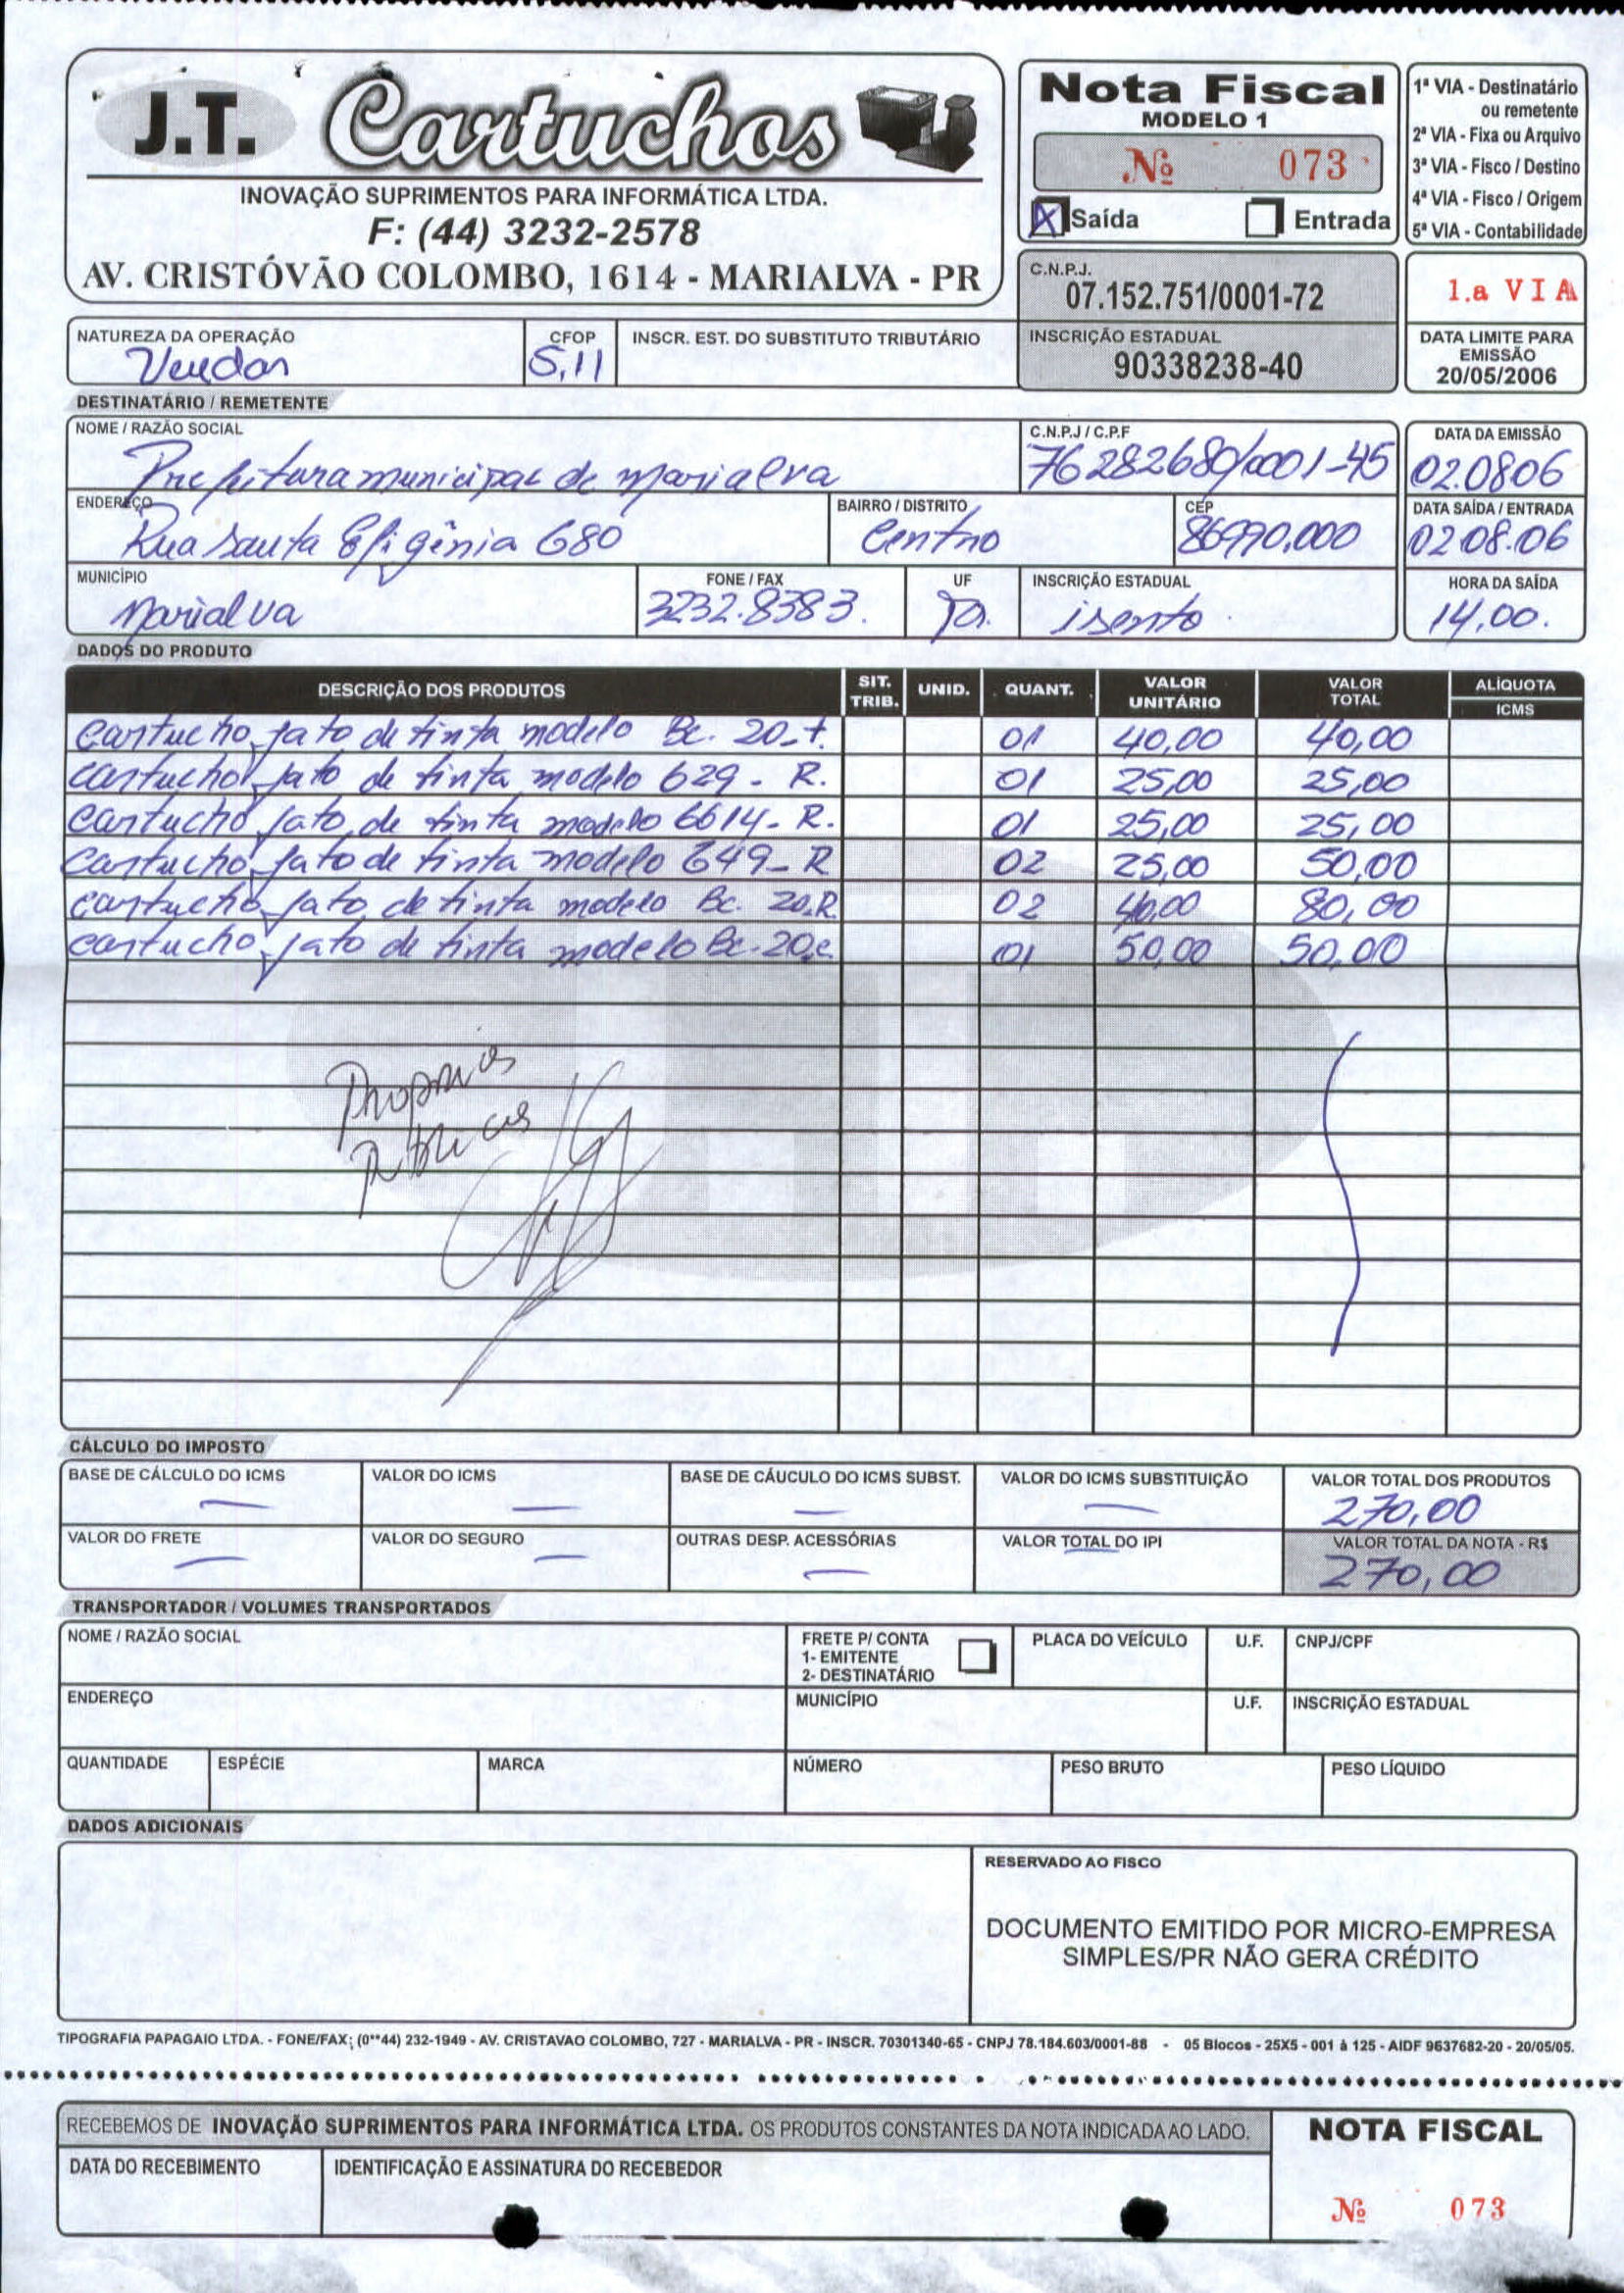 J.T. Cartuchos
INOVAÇÃO SUPRIMENTOS PARA INFORMÁTICA LTDA.
F: (44) 3232-2578
AV. CRISTÓVÃO COLOMBO, 1614 - MARIALVA - PR
Nota Fiscal
MODELO 1
Nº 073
X Saída Entrada
1ª VIA - Destinatário
ou remetente
2ª VIA - Fixa ou Arquivo
3ª VIA - Fisco / Destino
4ª VIA - Fisco / Origem
5ª VIA - Contabilidade
C.N.P.J.
07.152.751/0001-72
1.a VIA
NATUREZA DA OPERAÇÃO CFOP INSCR. EST. DO SUBSTITUTO TRIBUTÁRIO
Vendas 5,11
INSCRIÇÃO ESTADUAL
90338238-40
DATA LIMITE PARA
EMISSÃO
20/05/2006
DESTINATÁRIO / REMETENTE
NOME / RAZÃO SOCIAL C.N.P.J / C.P.F DATA DA EMISSÃO
Prefeitura municipal de Marialva 76282680/0001-45 02.0806
ENDEREÇO BAIRRO / DISTRITO CEP DATA SAÍDA / ENTRADA
Rua Santa Efigênia 680 Centro 86990.000 02.08.06
MUNICÍPIO FONE / FAX UF INSCRIÇÃO ESTADUAL HORA DA SAÍDA
Marialva 3232.8383. Pr. isento 14,00.
DADOS DO PRODUTO
DESCRIÇÃO DOS PRODUTOS SIT. TRIB. UNID. QUANT. VALOR UNITÁRIO VALOR TOTAL ALÍQUOTA ICMS
Cartucho jato de tinta modelo Bc. 20-t. 01 40,00 40,00
cartucho jato de tinta modelo 629 - R. 01 25,00 25,00
Cartucho jato de tinta modelo 6614 - R. 01 25,00 25,00
Cartucho jato de tinta modelo 649 - R 02 25,00 50,00
cartucho jato de tinta modelo Bc. 20.R. 02 40,00 80,00
cartucho jato de tinta modelo Bc-20.c. 01 50,00 50,00
Proprios
Publicos
CÁLCULO DO IMPOSTO
BASE DE CÁLCULO DO ICMS VALOR DO ICMS BASE DE CÁUCULO DO ICMS SUBST. VALOR DO ICMS SUBSTITUIÇÃO VALOR TOTAL DOS PRODUTOS
— — — — 270,00
VALOR DO FRETE VALOR DO SEGURO OUTRAS DESP. ACESSÓRIAS VALOR TOTAL DO IPI VALOR TOTAL DA NOTA - R$
— — — — 270,00
TRANSPORTADOR / VOLUMES TRANSPORTADOS
NOME / RAZÃO SOCIAL FRETE P/ CONTA PLACA DO VEÍCULO U.F. CNPJ/CPF
1- EMITENTE
2- DESTINATÁRIO
ENDEREÇO MUNICÍPIO U.F. INSCRIÇÃO ESTADUAL
QUANTIDADE ESPÉCIE MARCA NÚMERO PESO BRUTO PESO LÍQUIDO
DADOS ADICIONAIS
RESERVADO AO FISCO
DOCUMENTO EMITIDO POR MICRO-EMPRESA
SIMPLES/PR NÃO GERA CRÉDITO
TIPOGRAFIA PAPAGAIO LTDA. - FONE/FAX: (0**44) 232-1949 - AV. CRISTAVAO COLOMBO, 727 - MARIALVA - PR - INSCR. 70301340-65 - CNPJ 78.184.603/0001-88 - 05 Blocos - 25X5 - 001 à 125 - AIDF 9637682-20 - 20/05/05.
RECEBEMOS DE INOVAÇÃO SUPRIMENTOS PARA INFORMÁTICA LTDA. OS PRODUTOS CONSTANTES DA NOTA INDICADA AO LADO.
DATA DO RECEBIMENTO IDENTIFICAÇÃO E ASSINATURA DO RECEBEDOR
NOTA FISCAL
Nº 073